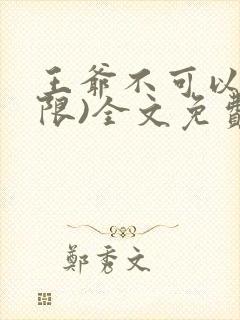 王爷不可以
限)全文免費
鄭秀文